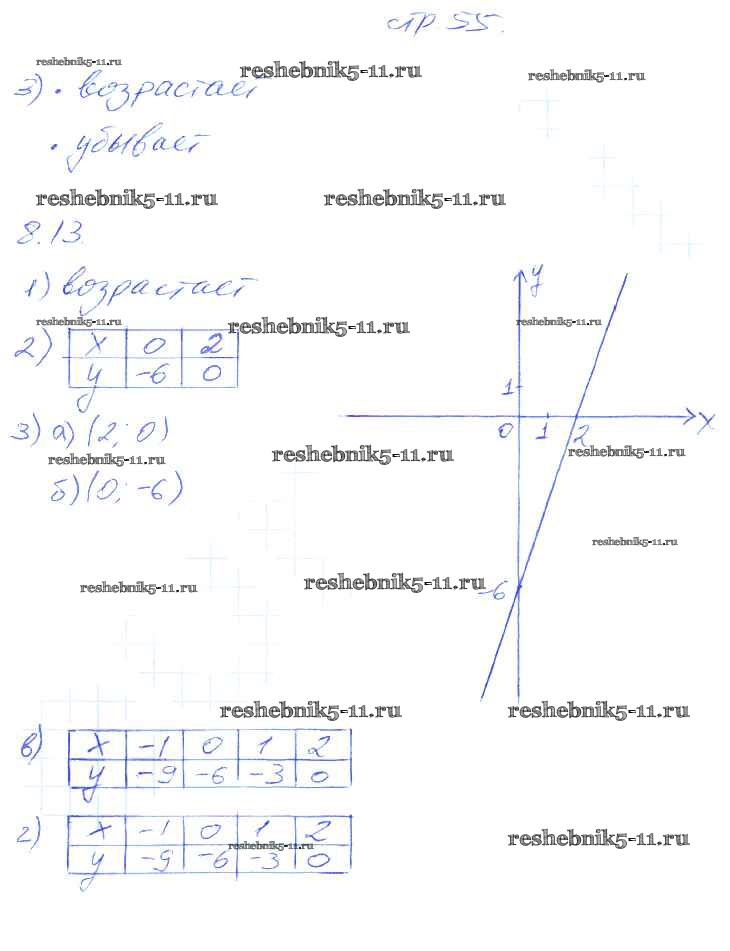 стр. 55.
reshebnik5-11.ru
reshebnik5-11.ru
reshebnik5-11.ru
3) • возрастает
• убывает
reshebnik5-11.ru
reshebnik5-11.ru
8.13.
1) возрастает
y
reshebnik5-11.ru
reshebnik5-11.ru
reshebnik5-11.ru
2) x 0 2
y -6 0
1
0 1 2 x
3) а) (2; 0)
reshebnik5-11.ru
reshebnik5-11.ru
reshebnik5-11.ru
б) (0; -6)
reshebnik5-11.ru
reshebnik5-11.ru
reshebnik5-11.ru
-6
reshebnik5-11.ru
reshebnik5-11.ru
в) x -1 0 1 2
y -9 -6 -3 0
г) x -1 0 1 2
reshebnik5-11.ru
reshebnik5-11.ru
y -9 -6 -3 0